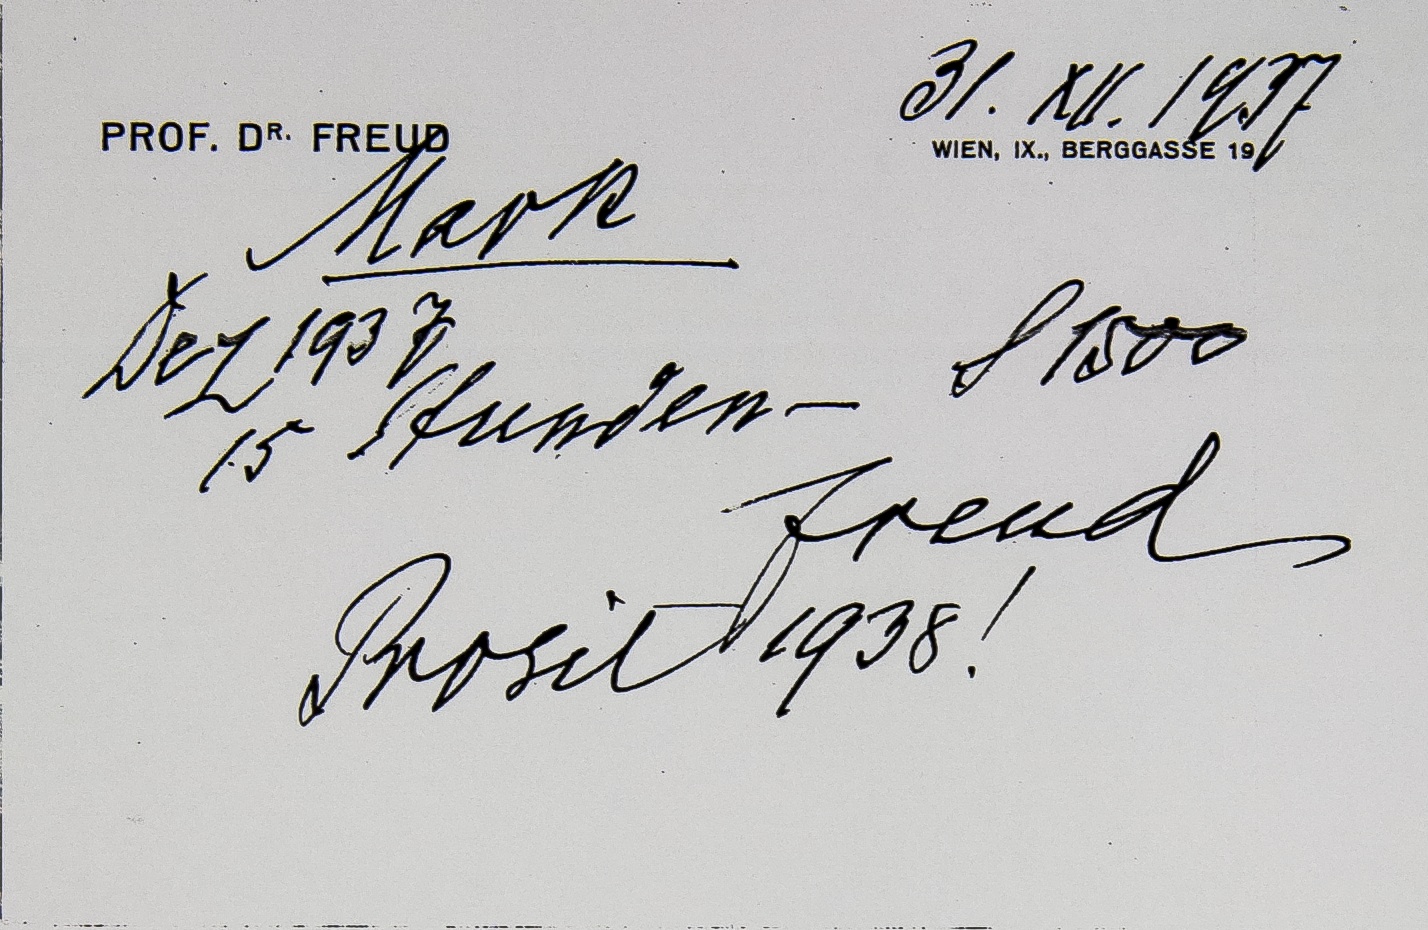 31. XII. 1937
PROF. DR. FREUD
WIEN, IX., BERGGASSE 19
Mark
Dez 1937
15 Stunden — S 1500
Freud
Prosit 1938!